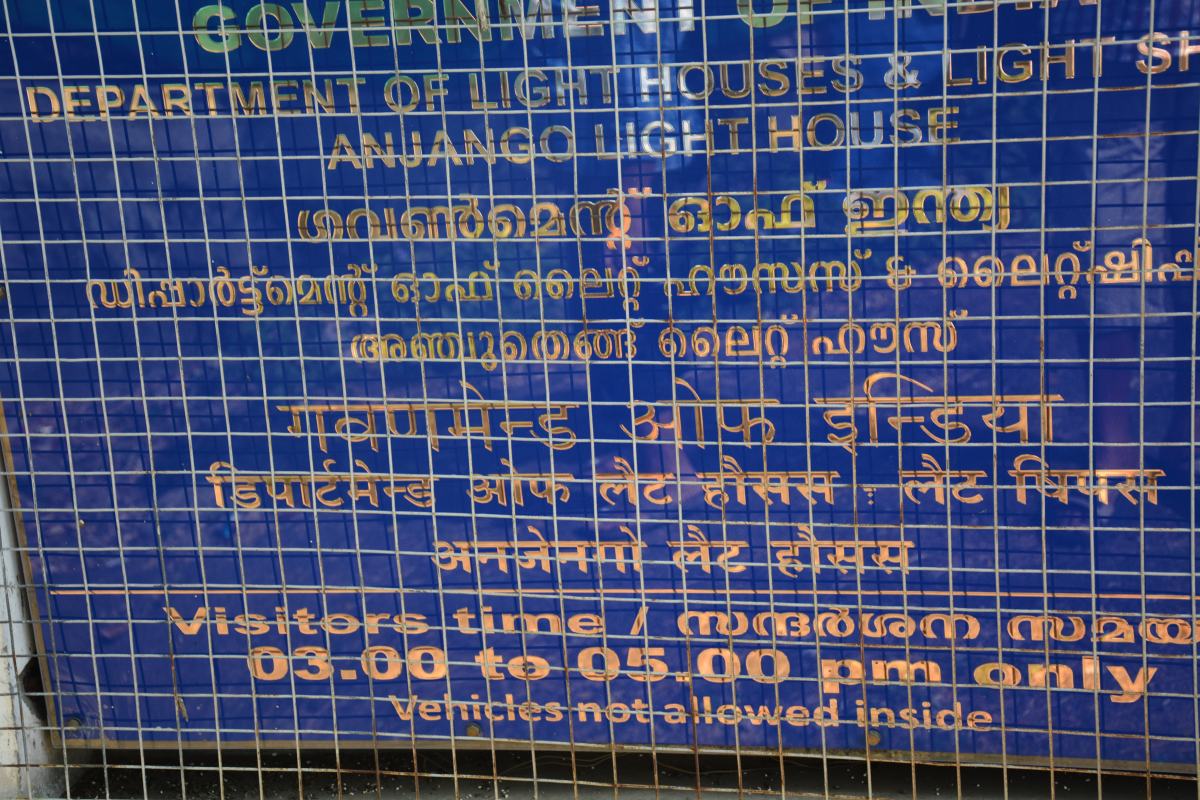 GOVERNMENT OF INDIA
DEPARTMENT OF LIGHT HOUSES & LIGHT SH
ANJANGO LIGHT HOUSE
ഗവൺമെന്റ് ഓഫ് ഇന്ത്യ
ഡിപ്പാർട്ട്മെന്റ് ഓഫ് ലൈറ്റ് ഹൗസസ് & ലൈറ്റ്ഷിപ്
അഞ്ചുതെങ്ങ് ലൈറ്റ് ഹൗസ്
गवणमेन्ड ओफ इन्डिया
डिपार्टमेन्ड ओफ लैट हौसस : लैट षिपस
अनजेनगो लैट हौसस
Visitors time / സന്ദർശന സമയ
03.00 to 05.00 pm only
Vehicles not allowed inside